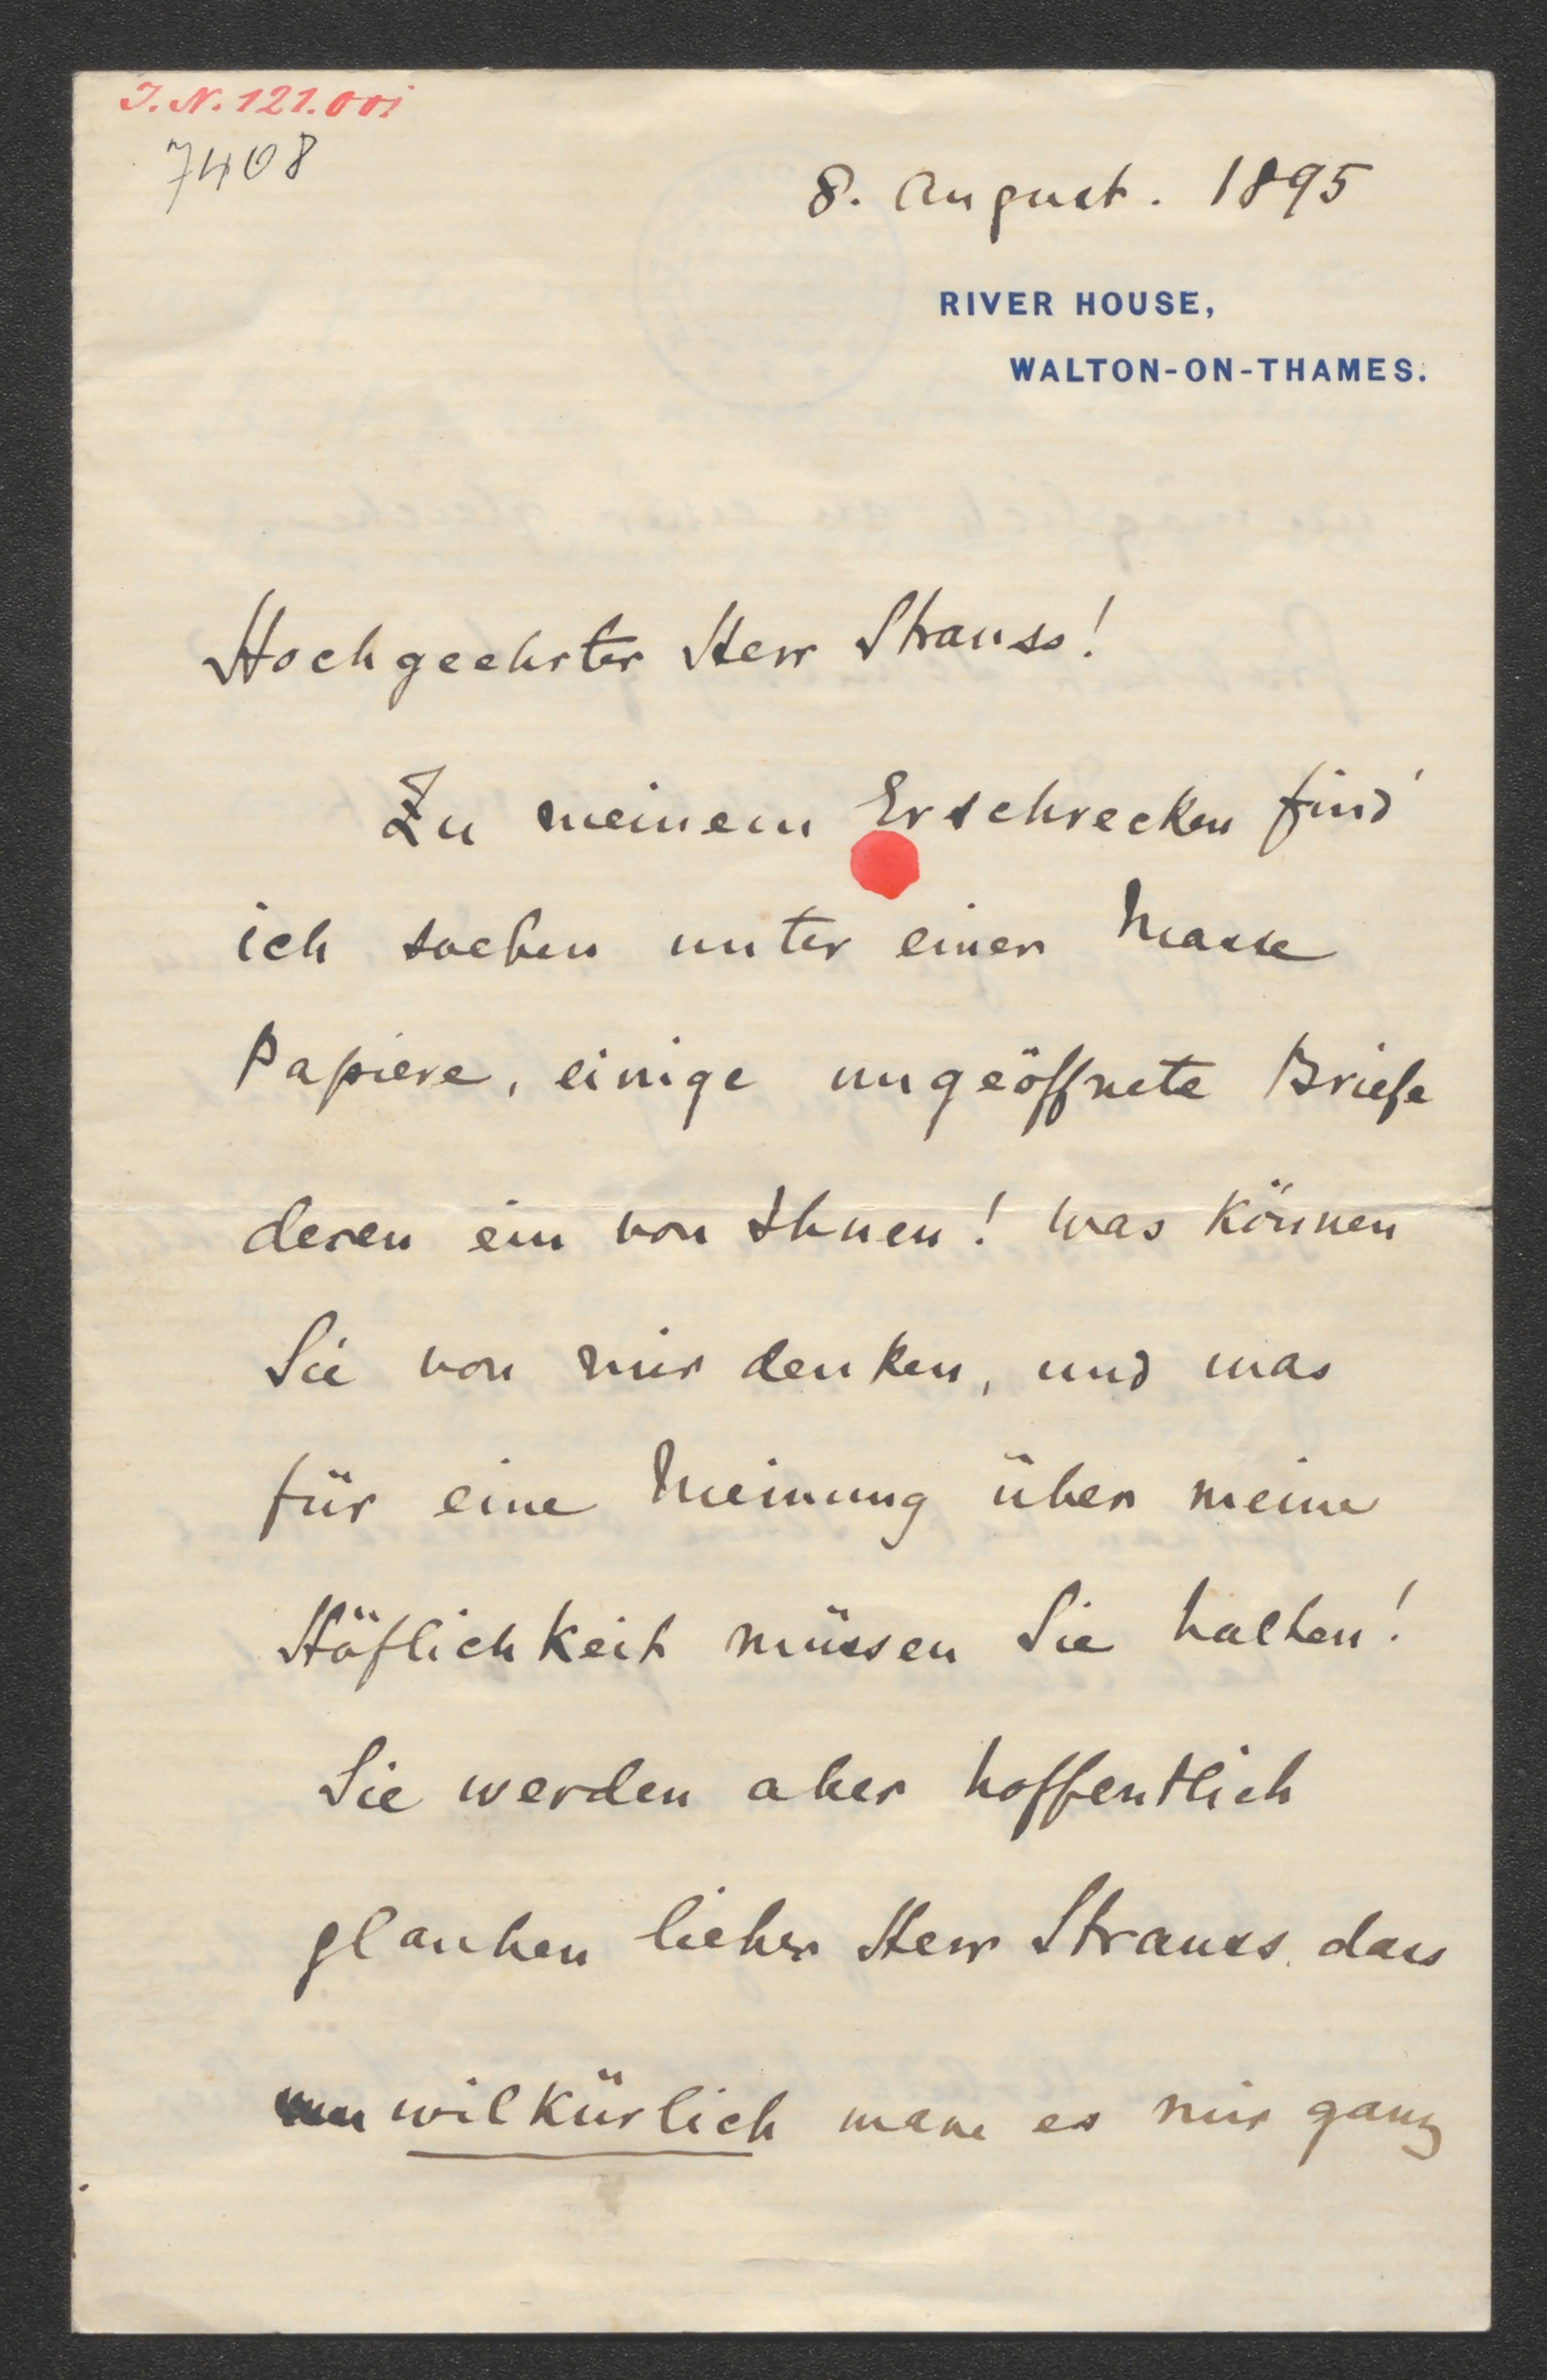 J. N. 121.001
7408
8. August. 1895
RIVER HOUSE,
WALTON-ON-THAMES.
Hochgeehrter Herr Strauss!
Zu meinem Erschrecken find'
ich soeben unter einer Masse
Papiere, einige ungeöffnete Briefe
deren ein von Ihnen! Was können
Sie von mir denken, und was
für eine Meinung über meine
Höflichkeit müssen Sie halten!
Sie werden aber hoffentlich
glauben lieber Herr Strauss, dass
wilkürlich es mir ganz